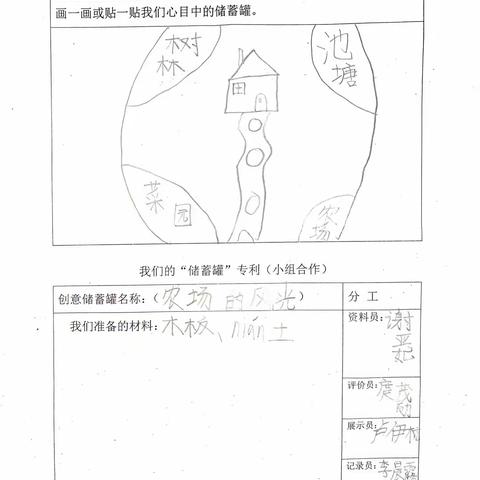 画一画或贴一贴我们心目中的储蓄罐。
树林
池塘
菜园
农场
我们的“储蓄罐”专利（小组合作）
创意储蓄罐名称：（农场的反光）
分 工
我们准备的材料：木板、nián土
资料员：谢亚妃
评价员：
展示员：卢伊村
记录员：李晨露